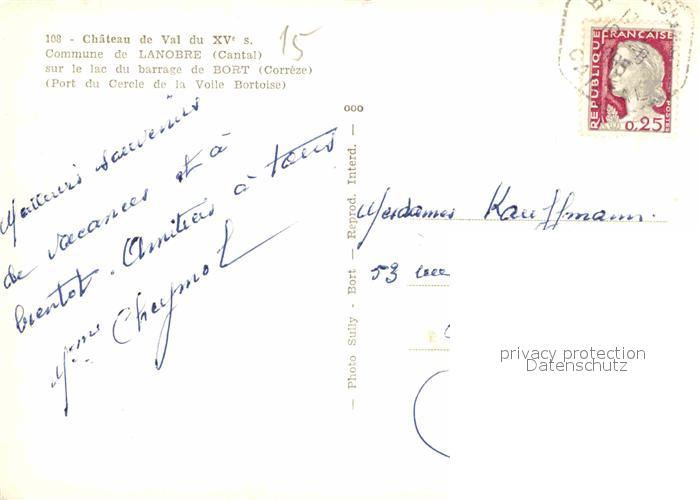 108 - Château de Val du XVe s.
Commune de LANOBRE (Cantal)
sur le lac du barrage de BORT (Corrèze)
(Port du Cercle de la Voile Bortoise)
15
Meilleurs souvenirs
de vacances et à
bientôt. Amitiés à tous
Mme Cheymol
ooo
— Photo Sully - Bort — Reprod. Interd. —
REPUBLIQUE FRANÇAISE
POSTES
0,25
Mesdames Kauffmann.
53
privacy protection
Datenschutz